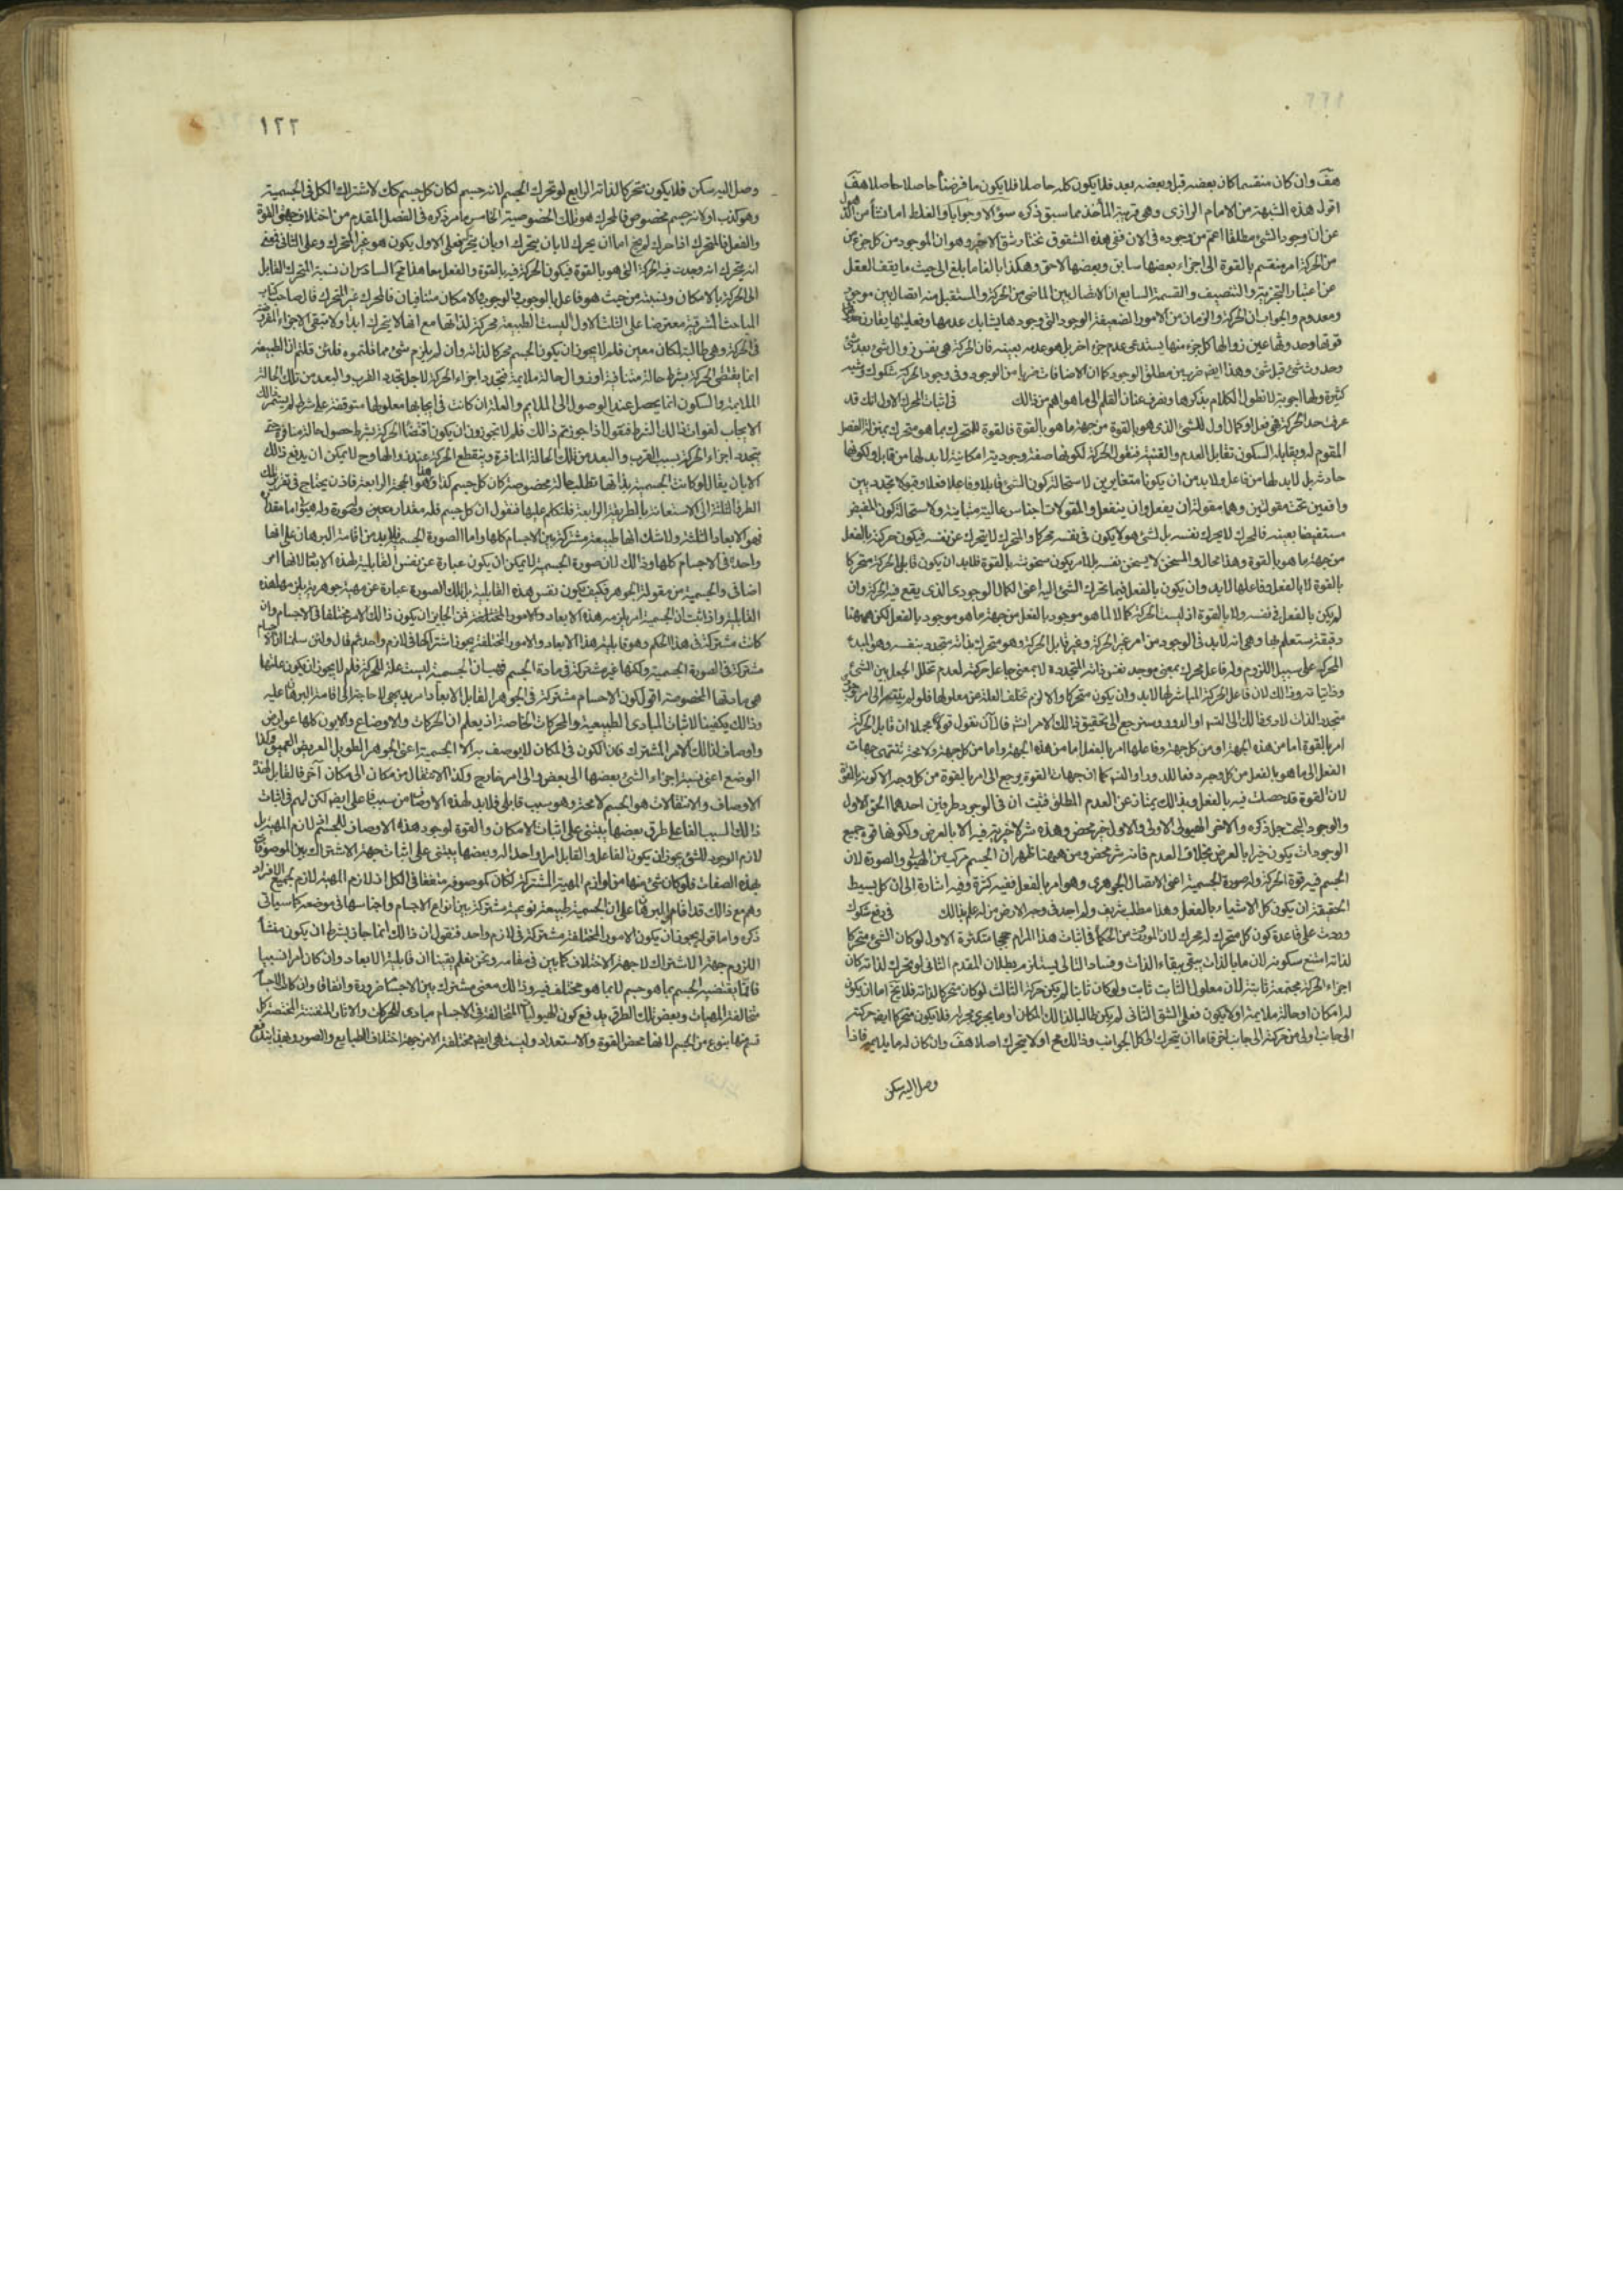 هف وان كان منقسما كان بعضه قبل وبعضه بعد فلا يكون كله حاصلا فلا يكون ما فرضناه حاصلا حاصلا هف
اقول هذه الشبهة من الامام الرازى وهى قريبة المأخذ مما سبق ذكره سؤالا وجوابا والغلط انما نشأ من الذهول
عن ان وجود الشئ مطلقا اعم من وجوده فى الان ففى هذه الشقوق نختار شق الاخير وهو ان الموجود من كل جزء من
من الحركة امر منقسم بالقوة الى اجزاء بعضها سابق وبعضها لاحق وهكذا بالغا ما بلغ الى حيث ما يقف العقل
عن اعتبار التجزية والتنصيف والقسمة السابع ان الاتصال بين الماضى من الحركة والمستقبل منه اتصال بين موجود
ومعدوم والجواب ان الحركة والزمان من الامور الضعيفة الوجود التى وجودها يشابك عدمها وفعليتها يقارن
قوتها وحدوثها عين زوالها كل جزء منها يستدعى عدم جزء اخر بل هو عدمه بعينه فان الحركة هى نفس زوال الشئ بعد شئ
وحدوث شئ قبل شئ وهذا ايضا ضرب من مطلق الوجود كما ان الاضافات ضرب من الوجود وفى وجود الحركة شكوك وشبه
كثيرة ولها اجوبة لا نطول الكلام بذكرها ونصرف عنان القلم الى ما هو اهم من ذالك فى اثبات المحرك الاول انك قد
عرفت حد الحركة هى فعل او كمال اول للشئ الذى هو بالقوة من جهة ما هو بالقوة فالقوة للمتحرك بما هو متحرك بمنزلة الفصل
المقوم له ويقابله السكون تقابل العدم والقنية فنقول الحركة لكونها صفة وجودية امكانية لا بد لها من قابل ولكونها
حادثة بل لا بد لها من فاعل ولا بد من ان يكونا متغايرين لاستحالة كون الشئ قابلا وفاعلا فعلا وقبولا تجدديين
واقعين تحت مقولتين وهما مقولة ان يفعل وان ينفعل والمقولات اجناس عالية متباينة ولاستحالة كون المفيض
مستفيضا بعينه فالمحرك لا يحرك نفسه بل لشئ هو لا يكون فى نفسه محركا والمتحرك لا يتحرك عن نفسه فيكون حركته بالفعل
من جهة ما هو بالقوة وهذا محال والمسخن لا يسخن نفسه بل لامر يكون سخونته بالقوة فلا بد ان يكون قابل الحركة متحركا
بالقوة لا بالفعل وفاعلها لا بد وان يكون بالفعل فيما تحرك الشئ اليه اعنى الكمال الوجودى الذى يقع فيه الحركة وان
لم يكن بالفعل فى نفسه ولا بالقوة اذ ليست الحركة كمالا لما هو موجود بالفعل من جهة ما هو موجود بالفعل لكن ههنا
دقيقة ستعلم بها وهى انه لا بد فى الوجود من امر غير الحركة وغير قابل الحركة وهو متحرك بذاته متجدد بنفسه وهو المبدء
للحركة على سبيل اللزوم وله فاعل محرك بمعنى موجد نفس ذاته المتجددة لا بمعنى جاعل حركته لعدم تخلل الجعل بين الشئ
وذاتياته وذالك لان فاعل الحركة المباشر لها لا بد وان يكون متحركا والا لزم تخلف العلة عن معلولها فلو لم ينته الى امر
متجدد الذات لادى ذالك الى التسلسل او الدور وسنرجع الى تحقيق ذالك الامر ان شاء فالآن نقول قولا مجملا ان قابل الحركة
امر بالقوة اما من هذه الجهة او من كل جهة وفاعلها امر بالفعل اما من هذه الجهة واما من كل جهة ولا محة تنتهى جهات
الفعل الى ما هو بالفعل من كل وجه دفعا للدور او التسلسل كما ان جهات القوة يرجع الى امر بالقوة من كل وجه الا كونه بالقوة
لان القوة قد حصلت فيه بالفعل وبذالك يمتاز عن العدم المطلق فثبت ان فى الوجود طرفين احدهما الحق الاول
والوجود البحت جل ذكره والاخرى الهيولى الاولى والاول خير محض وهذه شر لا خيرية فيه الا بالعرض ولكونها قوة جميع
الوجودات يكون خيرا بالعرض بخلاف العدم فانه شر محض ومن ههنا ظهر ان الجسم مركب من الهيولى والصورة لان
الجسم فيه قوة الحركة وله صورة الجسمية اعنى الاتصال الجوهرى وهو امر بالفعل ففيه كثرة وفيه اشارة الى ان كل بسيط
الحقيقة ان يكون كل الاشياء بالفعل وهذا مطلب شريف ولم اجد فى وجه الارض من له علم بذالك فى دفع شكوك
وردت على قاعدة كون كل متحرك له محرك لان الموروث من الحكماء فى اثبات هذا المرام حججا متكثرة الاول لو كان الشئ متحركا
لذاته امتنع سكونه لان ما بالذات يبقى ببقاء الذات وفساد التالى يستلزم بطلان المقدم الثانى لو تحرك لذاته كان
اجزاء الحركة مجتمعة ثابتة لان معلول الثابت ثابت ولو كان ثابتا لم يكن حركة الثالث لو كان متحركا لذاته فلا يخ اما ان يكون
له امكان او حالة ملايمة او لا يكون فعلى الشق الثانى لم يكن طالبا لذالك المكان او ما يجرى مجراه فلا يكون متحركا ايضا حركته
الى جانب اولى من حركته الى جانب اخر فاما ان يتحرك الى كل الجوانب وذالك مح او لا يتحرك اصلا هف وان كان له ما يلايمه فاذا
وصل اليه سكن
١٢٢
وصل اليه سكن فلا يكون متحركا لذاته الرابع لو تحرك الجسم لانه جسم لكان كل جسم كك لاشتراك الكل فى الجسمية
وهو كذب او لانه جسم مخصوص فالمحرك هو تلك الخصوصية الخامس ما مر ذكره فى الفصل المقدم من اختلاف جهتى القوة
والفعل فالمتحرك اذا حرك لم يخ اما ان يحرك لا بان يتحرك او بان يتحرك فعلى الاول يكون هو غير المتحرك وعلى الثانى فمعنى
انه يتحرك انه وجدت فيه الحركة التى هو بالقوة فيكون الحركة فيه بالقوة والفعل معا هذا مح السادس ان نسبة المتحرك القابل
الى الحركة بالامكان ونسبته من حيث هو فاعل بالوجوب والوجوب والامكان متنافيان فالمحرك غير المتحرك قال صاحب كتاب
المباحث المشرقية معترضا على الثلث الاول اليست الطبيعة محركة لذاتها مع انها لا يتحرك ابدا ولا تبقى الاجزاء المفروضة
فى الحركة وهى طالبة لمكان معين فلم لا يجوز ان يكون الجسم محركا لذاته وان لم يلزم شئ مما قلتموه فلئن قلتم ان الطبيعة
انما يقتضى الحركة بشرط حالة متنافية او زوال حالة ملايمة فتجدد اجزاء الحركة لاجل تجدد القرب والبعد من تلك الحالة
الملايمة والسكون انما يحصل عند الوصول الى الملايم والعلة ان كانت فى ايجابها معلولها متوقفة على شرط لم يستمر ذالك
الايجاب لفوات ذالك الشرط فنقول اذا جوزتم ذالك فلم لا تجوزون ان يكون اقتضاء الحركة بشرط حصول حالة منافرة حتى
يتجدد اجزاء الحركة بسبب القرب والبعد من تلك الحالة المنافرة وينقطع الحركة عند زوالها وح لا يمكن ان يدفع ذالك
الا بان يقال لو كانت الجسمية بذاتها تطلب حالة مخصوصة كان كل جسم كذا وهذا هو الحجة الرابعة فاذن يحتاج فى تقرير تلك
الطرق الثلثة الى الاستعانة بالطريقة الرابعة فلنتكلم عليها فنقول ان كل جسم فله مقدار معين وصورة وله هيولى اما مقداره
فهو الابعاد الثلثة ولا شك انها طبيعة مشتركة بين الاجسام كلها واما الصورة الجسمية فلا بد من اقامة البرهان على انها
واحدة فى الاجسام كلها وذالك لان صورة الجسمية لا يمكن ان يكون عبارة عن نفس القابلية لهذه الابعاد لانها امر
اضافى والجسمية من مقولة الجوهر فكيف يكون نفس هذه القابلية بل تلك الصورة عبارة عن مهية جوهرية يلزمها هذه
القابلية واذا ثبت ان الجسمية امر يلزمه هذه الابعاد والامور المختلفة فمن الجايز ان يكون ذالك الامر مختلفا فى الاجسام وان
كانت مشتركة فى هذا الحكم وهو قابلية هذا الابعاد والامور المختلفة يجوز اشتراكها فى لازم واحد ثم قال ولئن سلمنا ان الاجسام
مشتركة فى الصورة الجسمية ولكنها غير مشتركة فى مادة الجسم فهب ان الجسمية ليست علة للحركة فلم لا يجوز ان يكون علتها
هى مادتها المخصوصة اقول كون الاجسام مشتركة فى الجوهر القابل الابعاد امر بديهى لا حاجة الى اقامة البرهان عليه
وذالك يكفينا لاثبات المبادى الطبيعية والمحركات الخاصة اذ يعلم ان الحركات والاوضاع والايون كلها عوارض
واوصاف لذالك الامر المشترك فان الكون فى المكان لا يوصف به الا الجسمية اعنى الجوهر الطويل العريض العميق وكذا
الوضع اعنى نسبة اجزاء الشئ بعضها الى بعض والى امر خارج وكذا الانتقال من مكان الى مكان آخر فالقابل لهذه
الاوصاف والانتقالات هو الجسم لا محة وهو سبب قابلى فلا بد لهذه الاوصاف من سبب فاعلى ايضا لكن لهم فى اثبات
ذالك السبب الفاعلى طرق بعضها يبتنى على اثبات الامكان والقوة لوجود هذه الاوصاف للجسم اذ لازم المهية بل
لازم الوجود للشئ يجوز ان يكون الفاعل والقابل امرا واحدا له وبعضها يبتنى على اثبات جهة الاشتراك بين الموصوفات
بهذه الصفات فلو كان شئ منها من لوازم المهية المشتركة لكان كل موصوفه متفقا فى الكل اذ لازم المهية لازم لجميع الافراد
وهم مع ذالك قد اقاموا البرهان على ان الجسمية طبيعة نوعية مشتركة بين انواع الاجسام واجناسها فى موضعه كما سيأتى
ذكره واما قوله يجوز ان يكون الامور المختلفة مشتركة فى لازم واحد فنقول ان ذالك انما جاز بشرط ان يكون منشأ
اللزوم جهة الاشتراك لا جهة الاختلاف كما بين فى مقامه ونحن نعلم يقينا ان قابلية الابعاد وان كان امرا نسبيا
فانما يقتضيه الجسم بما هو جسم لا بما هو مختلف فيه وذالك معنى مشترك بين الاجسام ضرورة واتفاقا وان كان الاجسام
متخالفة المهيات وبعض تلك الطرق يدفع كون الهيوليات المتخالفة فى الاجسام مبادى للحركات والاثار المفننة المختصة كل
قسم منها بنوع من الجسم لانها محض القوة والاستعداد وليست هى ايضا مختلفة الا من جهة اختلاف الطبايع والصور